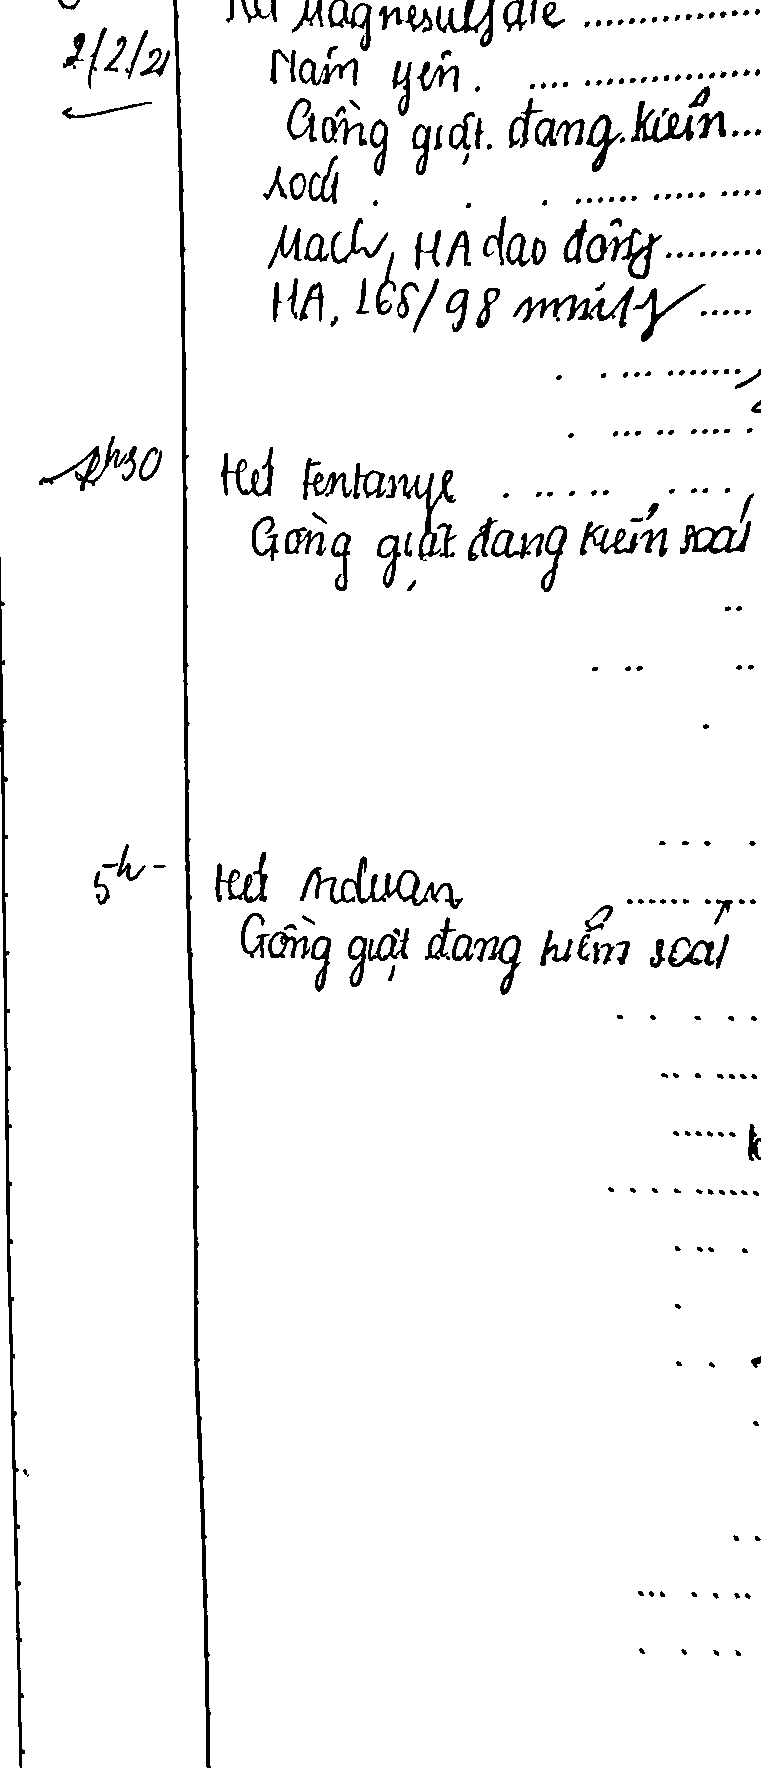 Hết Magnesulfate
2/2/21 Nằm yên.
Gồng giật đang kiểm
soát
Mạch, HA dao động
HA. 168/98 mmHg
Hết Fentanyl
Gồng giật đang kiểm soát
5h Hết Arduan
Gồng giật đang kiểm soát